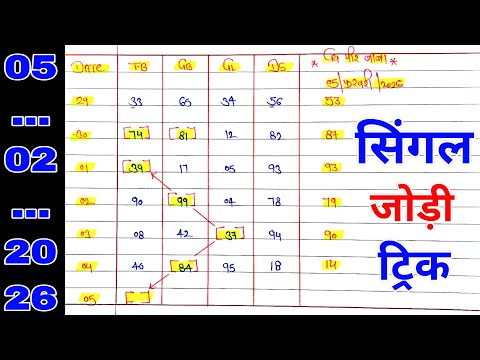 05
...
02
...
20
26
DATE FB GB GL DS
29 33 65 34 56 53
30 74 81 12 82 87
01 39 17 05 93 93
02 90 99 04 78 79
03 08 42 37 94 90
04 46 84 95 18 14
05
05/फरवरी/2026
सिंगल
जोड़ी
ट्रिक